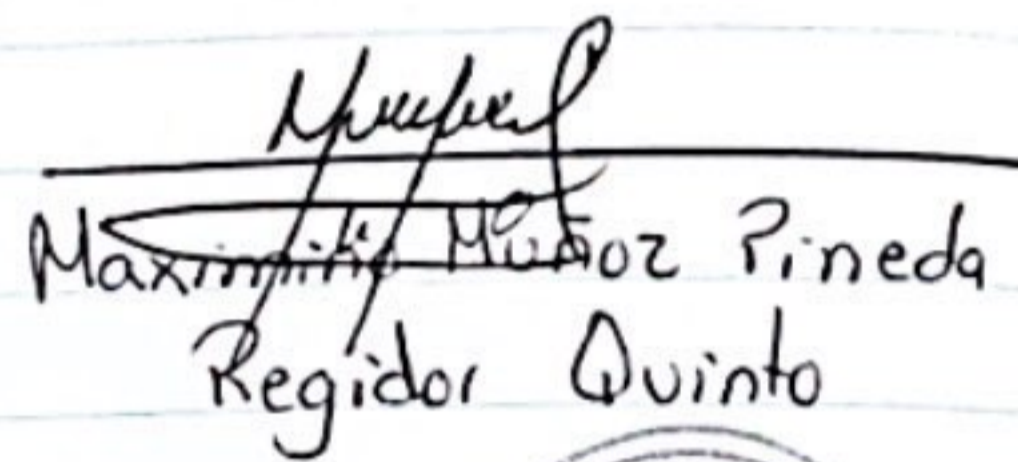 Maximilio Muñoz Pineda
Regidor Quinto